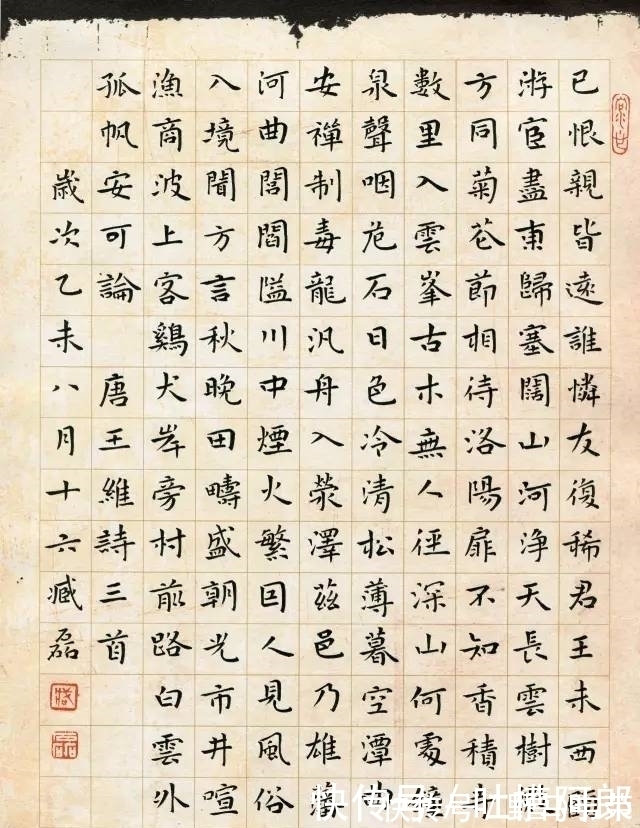 已恨親皆遠誰憐友復稀君王未西
游宦盡東歸塞闊山河淨天長雲樹
方同菊花節相待洛陽扉不知香積
數里入雲峯古木無人徑深山何處
泉聲咽危石日色冷清松薄暮空潭
安禪制毒龍汎舟入滎澤茲邑乃雄
河曲閭閻隘川中煙火繁因人見風俗
入境聞方言秋晚田疇盛朝光市井喧
漁商波上客鷄犬岸旁村前路白雲外
孤帆安可論 唐王維詩三首
歲次乙未八月十六臧磊
吐槽阿郎